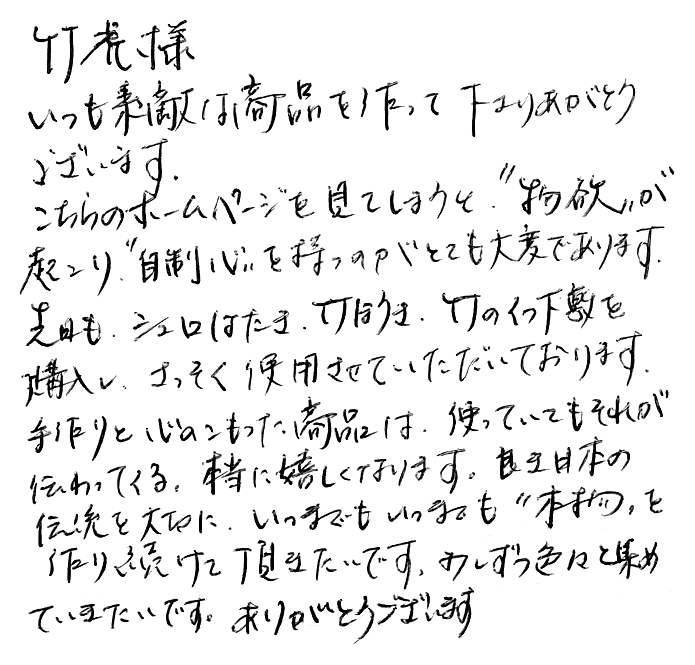 竹虎様
いつも素敵な商品を作って下さりありがとう
ございます。
こちらのホームページを見てしまうと、"物欲"が
起こり、"自制心"を持つのがとても大変であります。
先日も、シュロはたき、竹ぼうき、竹のイス下敷を
購入し、さっそく使用させていただいております。
手作りと心のこもった商品は、使っていてもそれが
伝わってくる。本当に嬉しくなります。良き日本の
伝統を大切に、いつまでもいつまでも"本物"を
作り続けて頂きたいです。少しずつ色々と集め
ていきたいです。ありがとうございます